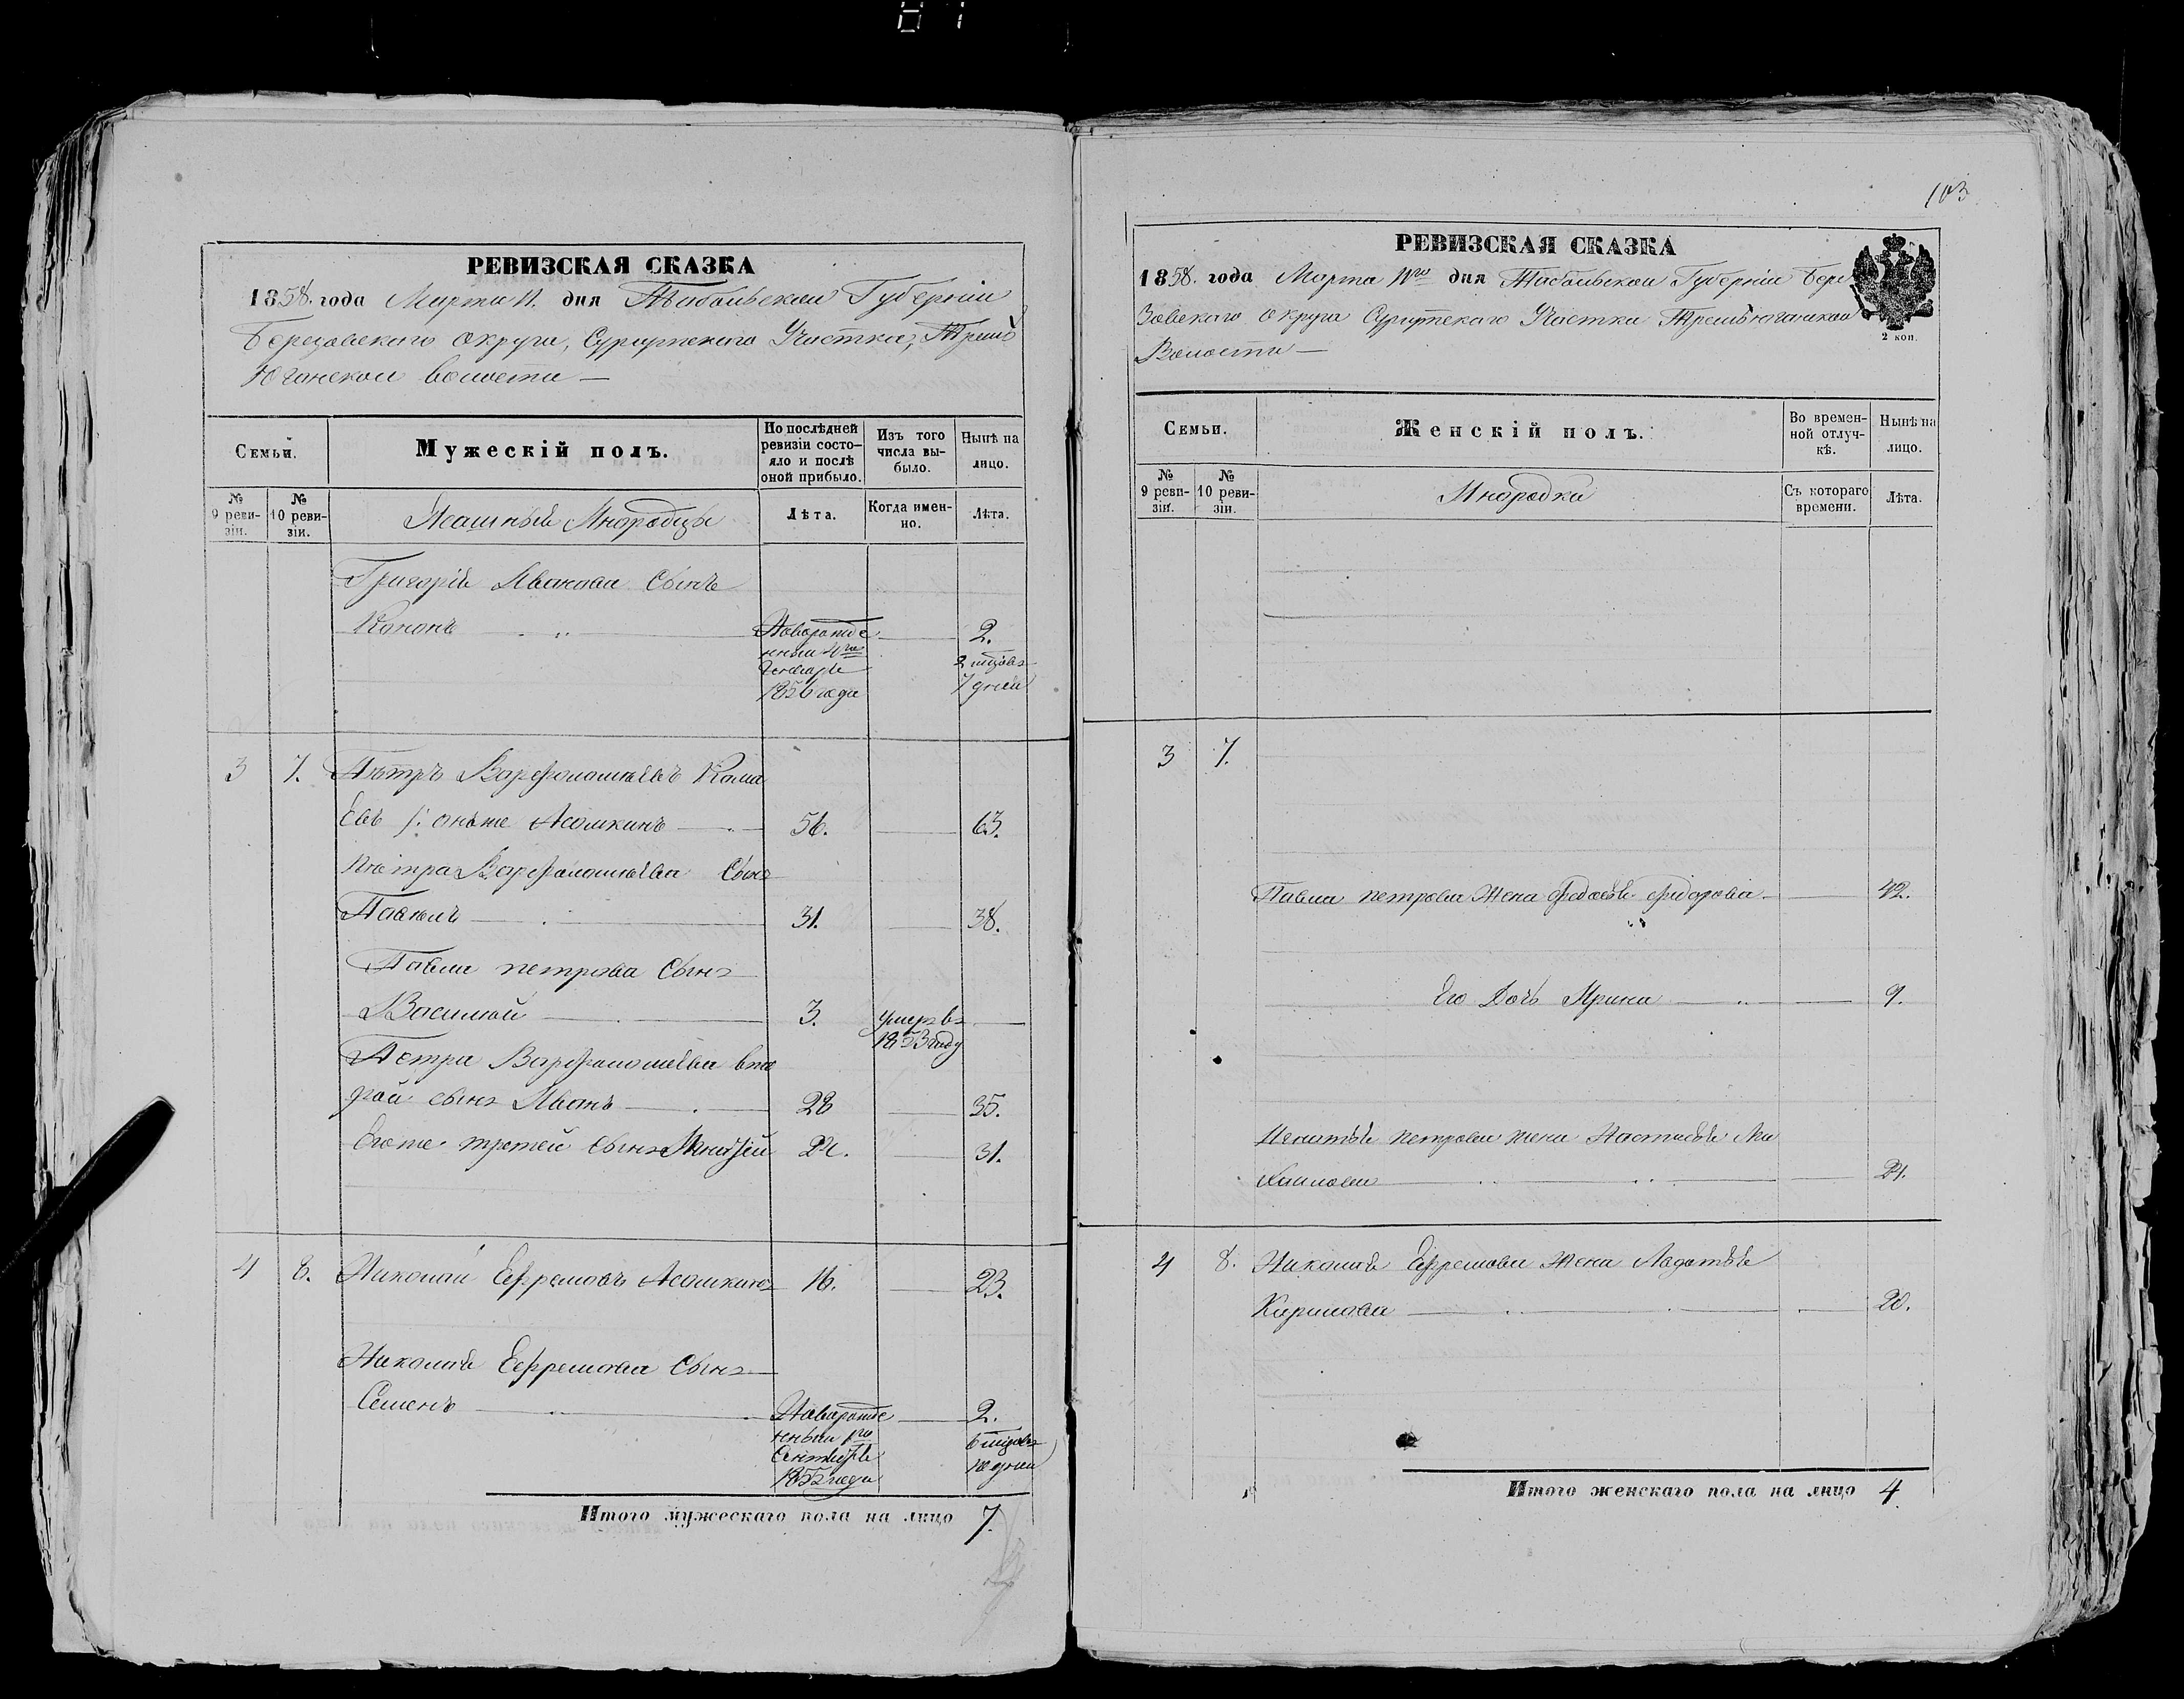 103
РЕВИЗСКАЯ СКАЗКА
1858. года Марта 11. дня Тобольской Губерніи
Березовскаго округа, Сургутскаго Участка, Тромъ
Юганской волости —
Семьи.
Мужескій полъ.
По послѣдней ревизіи состояло и послѣ оной прибыло.
Изъ того числа выбыло.
Нынѣ на лицо.
№ 9 ревизіи.
№ 10 ревизіи.
Ясашныя Инородцы
Лѣта.
Когда именно.
Лѣта.
Григорія Иванова Сынъ
Кононъ
Новорожде
2.
нный 4го
2 мцовъ
Генваря
7 дней
1856 года
3 7. Пѣтръ Варфоломѣевъ Кама
евъ /: онъ же Асомкинъ 56. 63.
Пѣтра Варфоломѣева Сынъ
Павѣлъ 31. 38.
Павла петрова Сынъ
Василѣй 3. умеръ въ
1853 году
Петра Варфоломѣева вто
рой сынъ Иванъ 28 35.
Его же третей сынъ 24. 31.
4 8. Николай Ефремовъ Асомкинъ 16. 23.
Николая Ефремова Сынъ
Семенъ
Новорожде
2.
нный 1го
6 мцовъ
Сентября
10 дней
1855 года
Итого мужескаго пола на лицо 7.
РЕВИЗСКАЯ СКАЗКА
1858. года Марта 11го дня Тобольской Губерніи Бере
зовскаго округа Сургутскаго Участка Тромъюганской
Волости —
2 коп.
Семьи.
Женскій полъ.
Во временной отлучкѣ.
Нынѣ на лицо.
№ 9 ревизіи.
№ 10 ревизіи.
Инородки
Съ котораго времени.
Лѣта.
3 7.
Павла петрова Жена Федосья Федорова 42.
Его Дочь Ирина 9.
петрова жена Настасья Ми
хаилова 24.
4 8. Николая Ефремова Жена
Кирилова 20.
Итого женскаго пола на лицо 4.